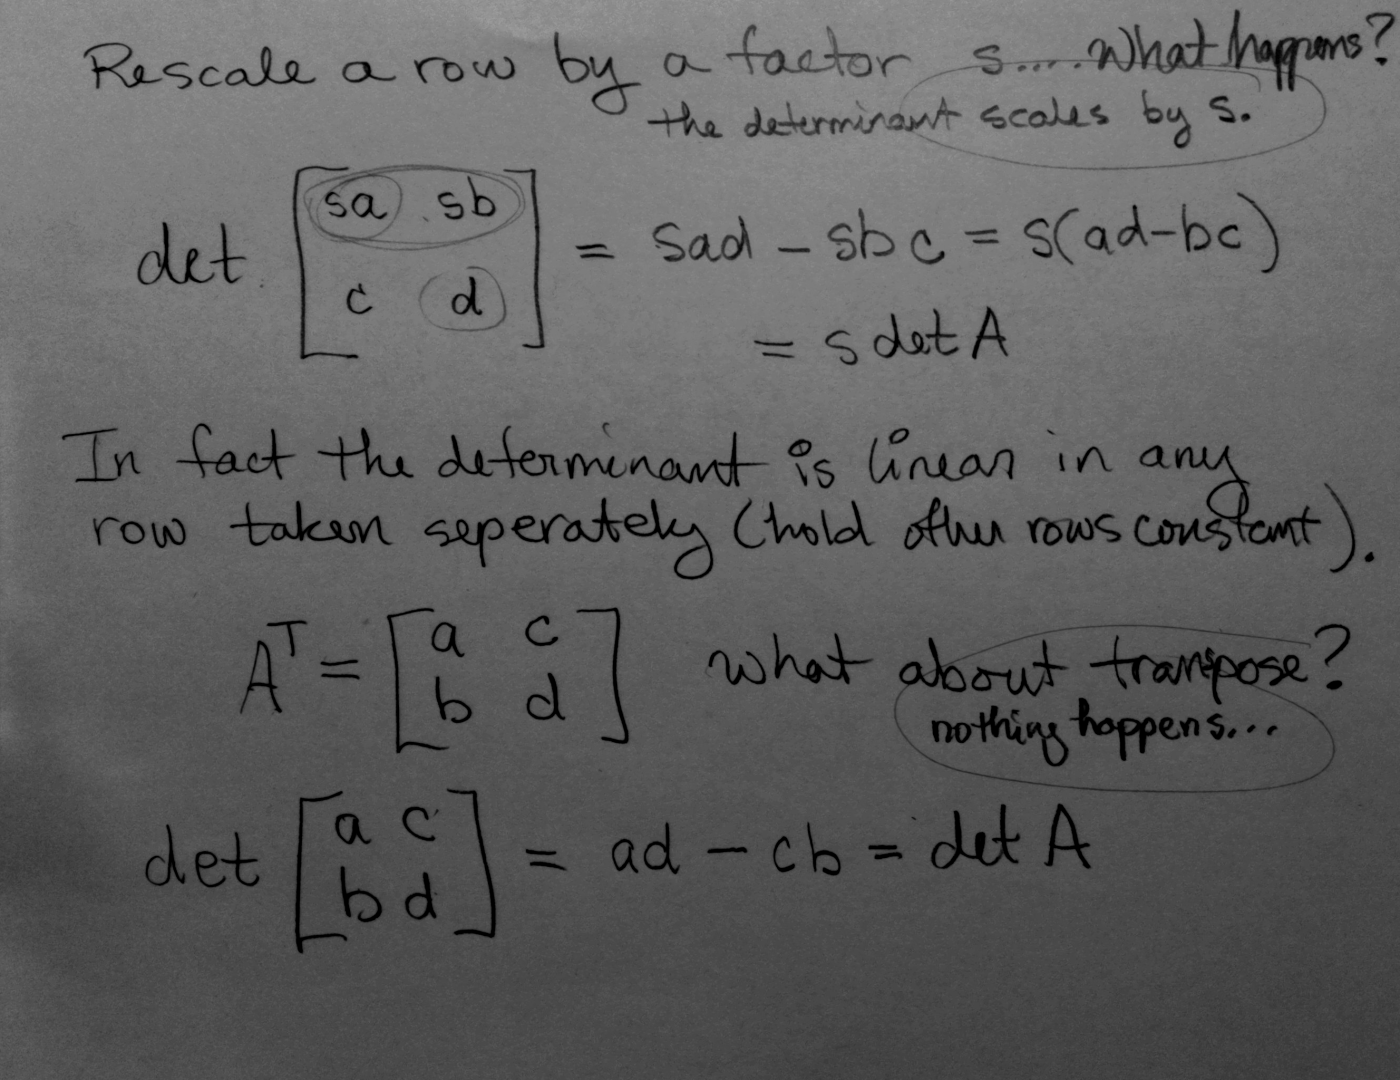 Rescale a row by a factor s.... What happens?
the determinant scales by s.
det [sa sb
c d] = sad - sbc = s(ad-bc)
= s det A
In fact the determinant is linear in any
row taken seperately (hold other rows constant).
A^T = [a c
b d] what about transpose?
nothing happens...
det [a c
b d] = ad - cb = det A